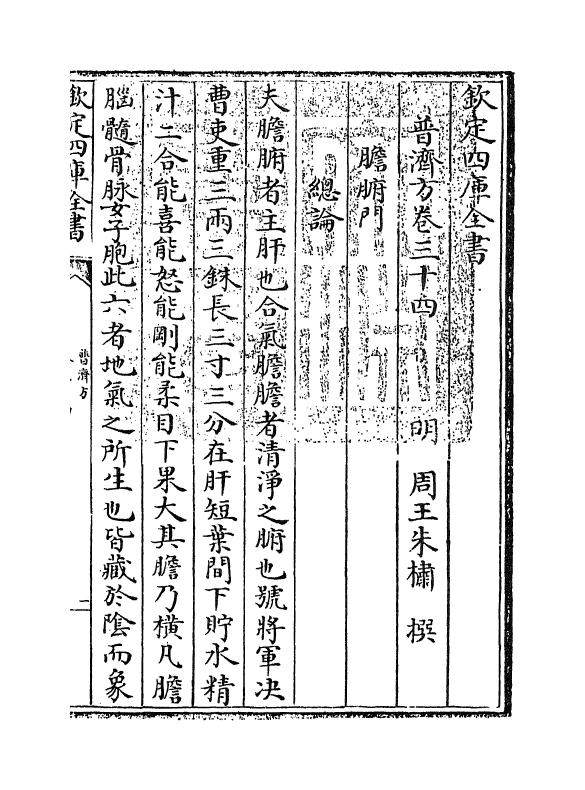 欽定四庫全書
普濟方卷三十四 明 周王朱橚 撰
膽腑門
總論
夫膽腑者主肝也合氣膽膽者清淨之腑也號將軍决
曹吏重三兩三銖長三寸三分在肝短葉間下貯水精
汁二合能喜能怒能剛能柔目下果大其膽乃橫凡膽
腦髓骨脉女子胞此六者地氣之所生也皆藏於陰而象
欽定四庫全書
普濟方